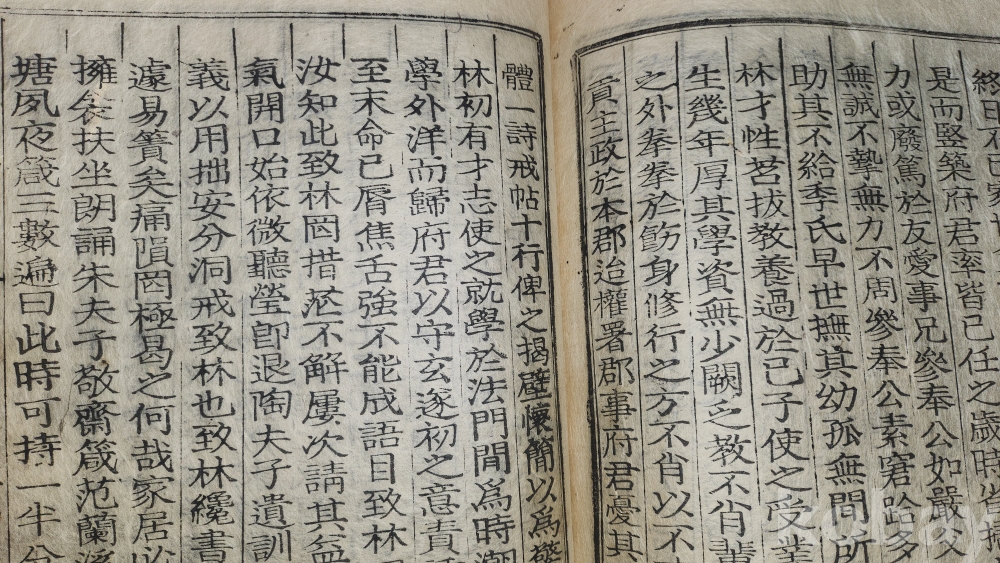 終日不已家
是而竪築府君率皆己任之歲時
力或廢篤於友愛事兄參奉公如嚴父
無誠不摯無力不周參奉公素窘跲多
助其不給季氏早世撫其幼孤無間所
林才性茗拔教養過於己子使之受業
生幾年厚其學資無少闕乏教不肖輩
之外拳拳於飭身修行之方不肖以不
貢主政於本郡迨權署郡事府君憂其
體一詩戒帖十行俾之揭壁懷簡以爲
林初有才志使之就學於法門閒爲時潮
學外洋而歸府君以守玄遂初之意責
至末命已脣焦舌強不能成語目致林
汝知此致林罔措茫不解屢次請其益
氣開口始依微聽瑩卽退陶夫子遺訓
義以用拙安分洞戒致林也致林纔書
遽易簀矣痛隕罔極曷之何哉家居必
擁衾扶坐朗誦朱夫子敬齋箴范蘭溪
塘夙夜箴三數遍曰此時可持一半分